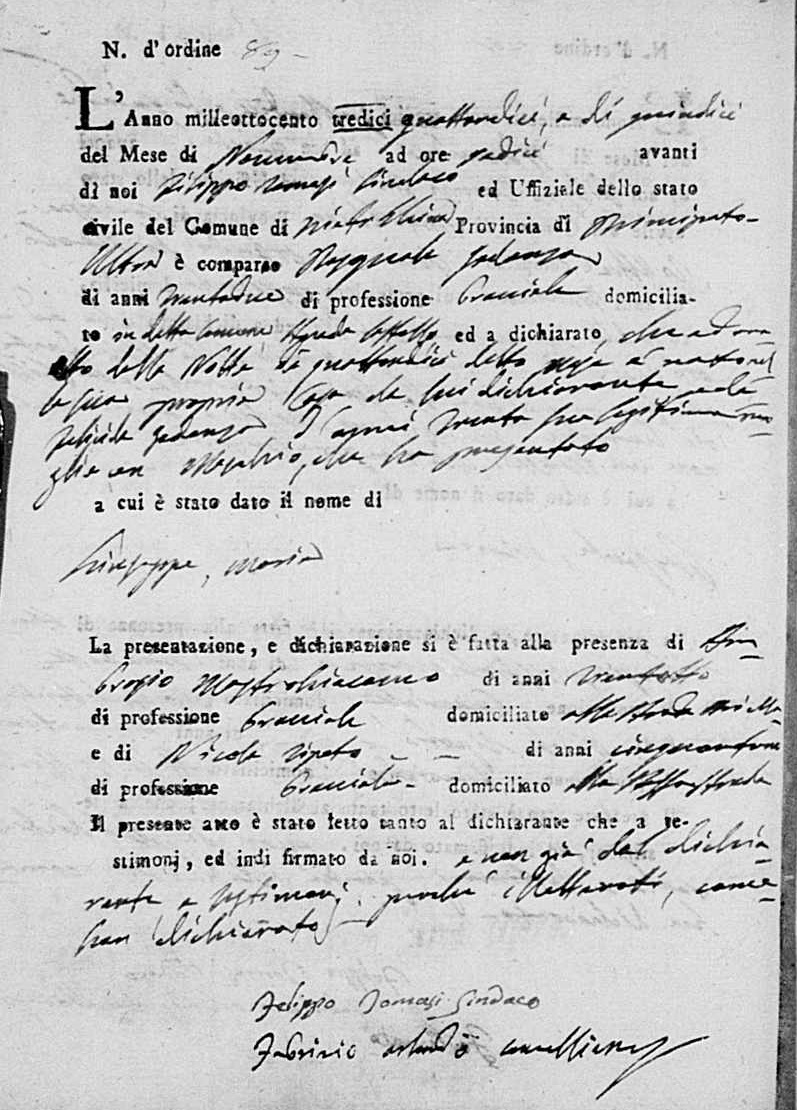 N. d'ordine 89
L'Anno milleottocento tredici quattordici, a dì quindici
del Mese di Novembre ad ore sedici avanti
di noi Filippo Tomasi Sindaco ed Uffiziale dello stato
civile del Comune di Provincia di Principato
Ultra è comparso Pasquale
di anni trentadue di professione Bracciale domicilia-
to in detto Comune Strada ed a dichiarato, che ad ore
otto della Notte de quattordici detto mese è nato nel
la sua propria Casa da lui dichiarante e da
d'anni trenta sua legitima mo-
glie un Maschio, che ha presentato
a cui è stato dato il nome di
Giuseppe, Maria
La presentazione, e dichiarazione si è fatta alla presenza di Am-
brogio Mastrogiacomo di anni trentotto
di professione Bracciale domiciliato alla Strada
e di Nicola di anni
di professione Bracciale domiciliato alla
Il presente atto è stato letto tanto al dichiarante che a te-
stimonj, ed indi firmato da noi. e non già dal dichia-
rante e testimonj, perché illetterati, come
han dichiarato
Filippo Tomasi Sindaco
Fabrizio Orlando Cancelliere